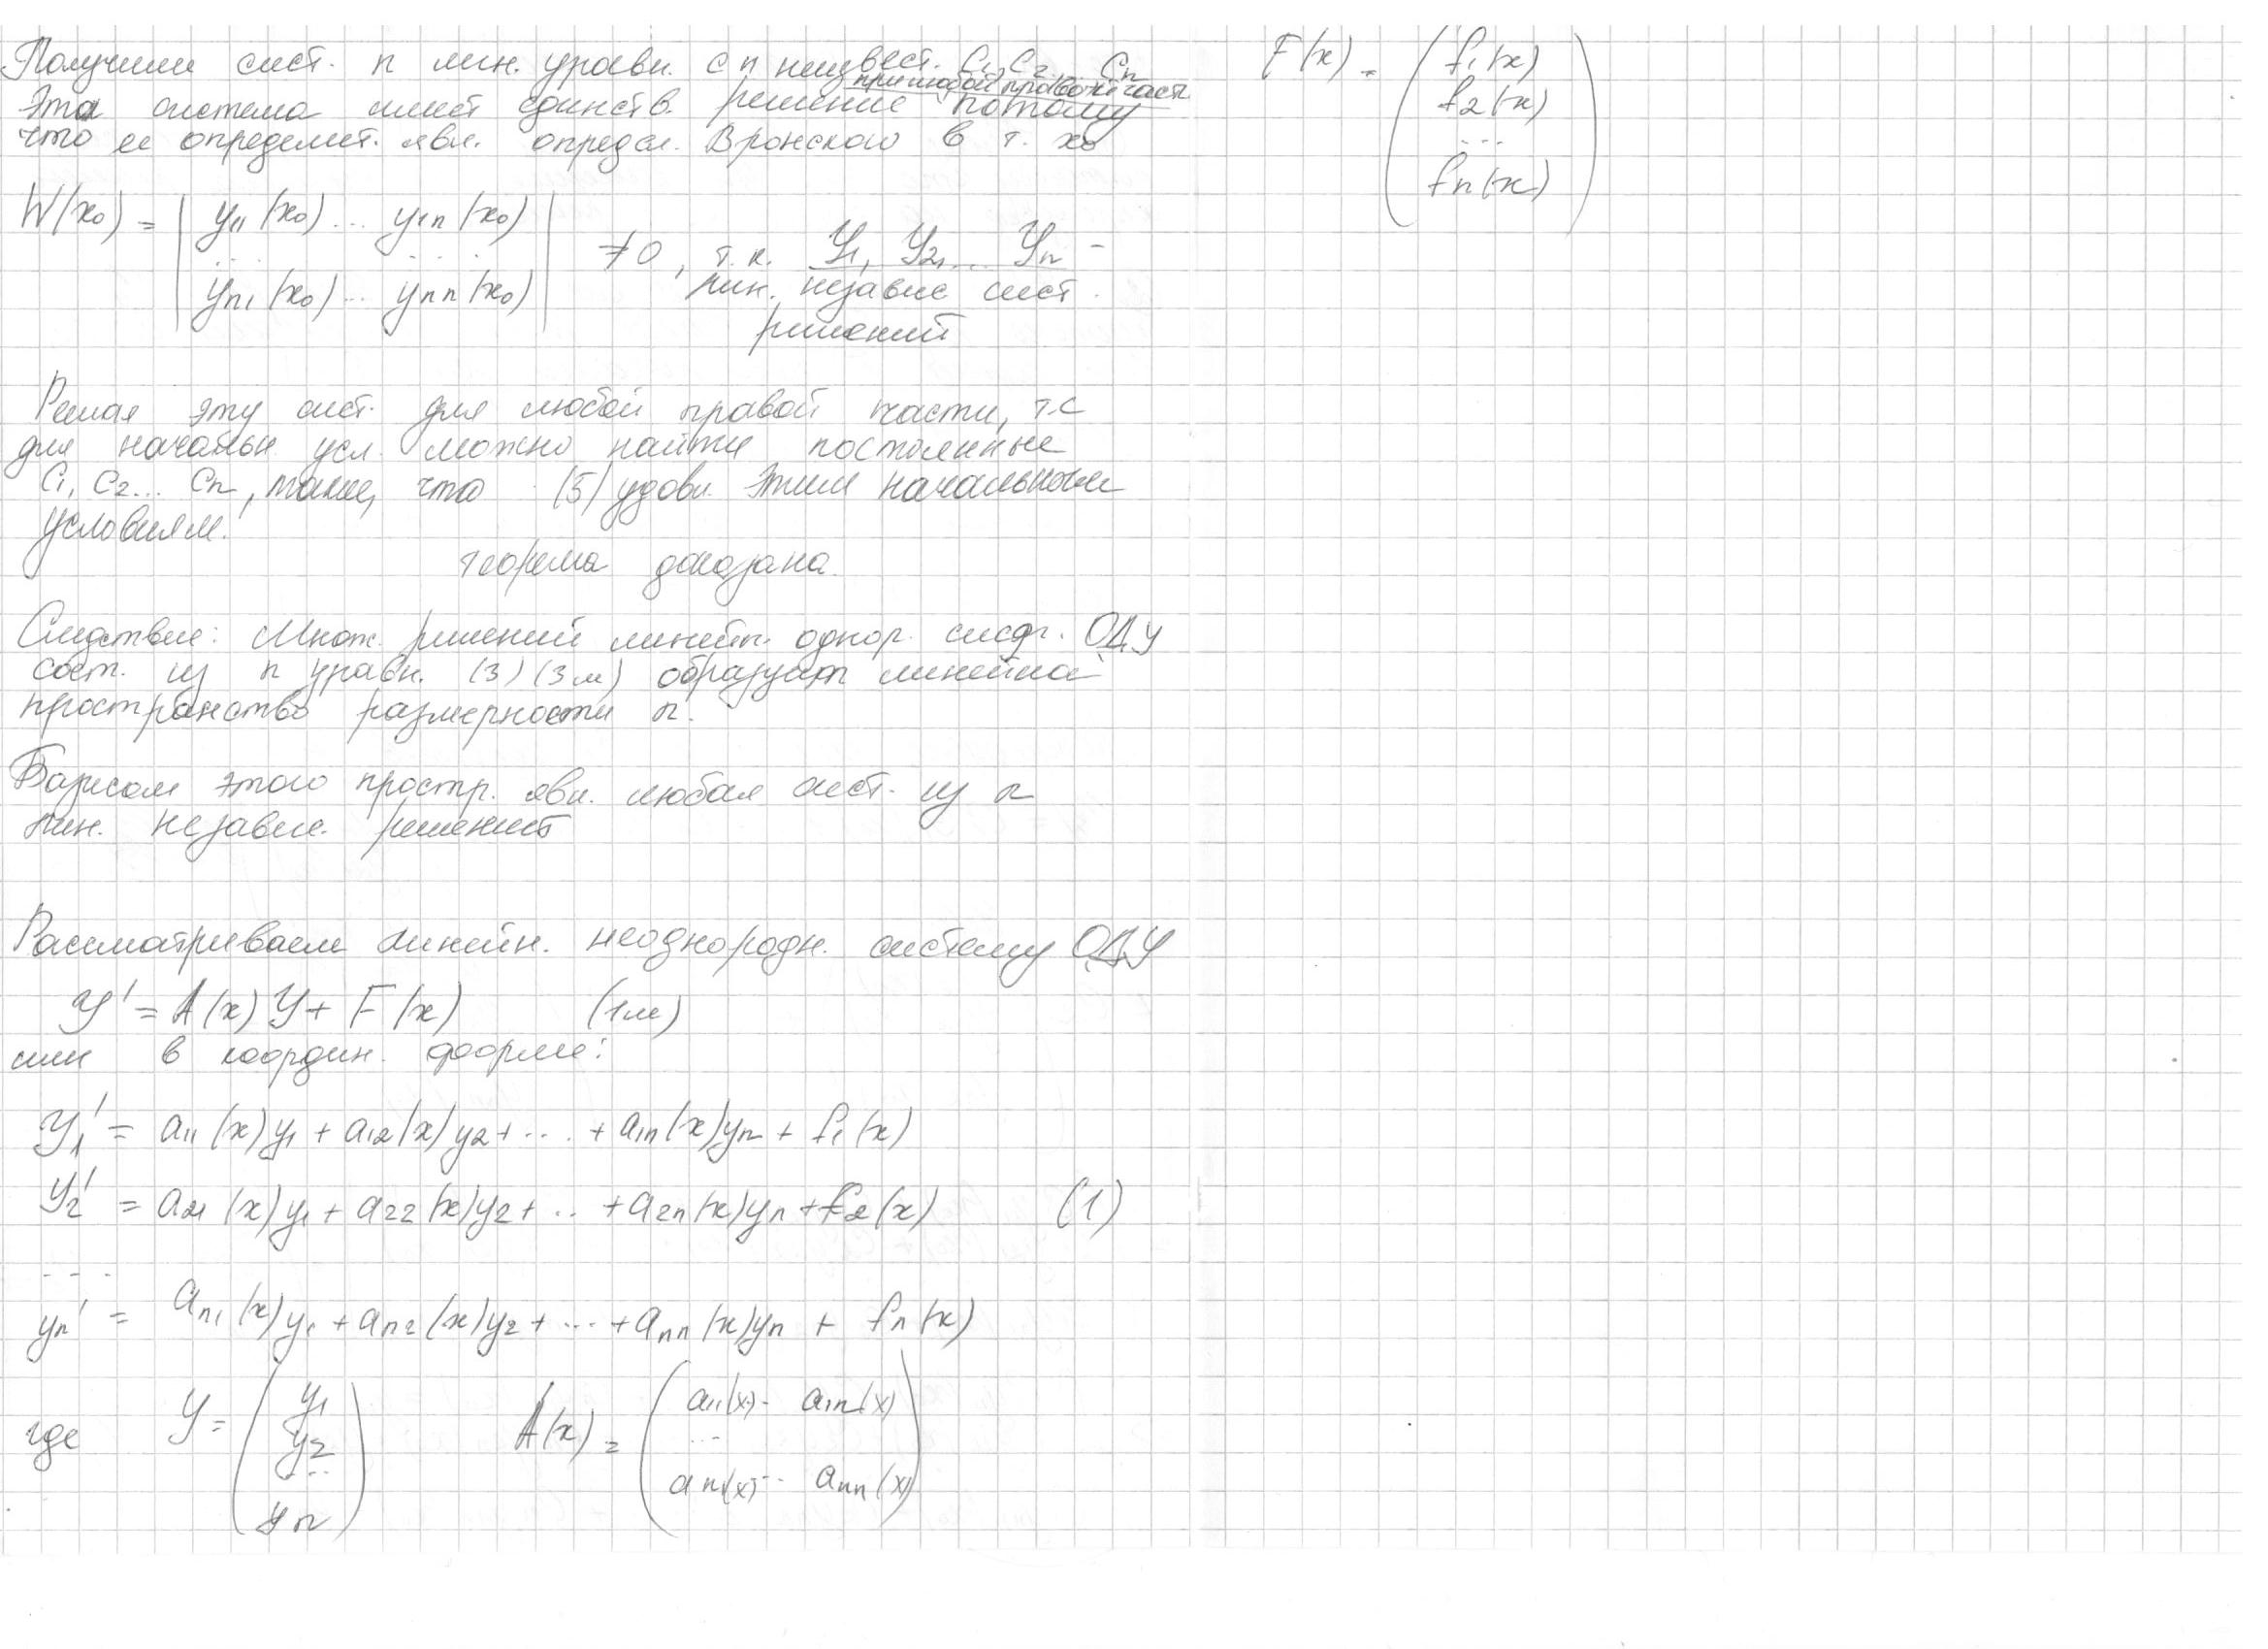 Получили сист. n лин. уравн. с n неизвест. C₁, C₂ ... Cₙ
при любой правой части
Эта система имеет единств. решение потому
что ее определит. явл. определ. Вронского в т. x₀
W(x₀) = | y₁₁(x₀) ... y₁ₙ(x₀) |
... ...
| yₙ₁(x₀) ... yₙₙ(x₀) | ≠ 0, т.к. Y₁, Y₂, ... Yₙ –
лин. независ сист.
решений
Решая эту сист. для любой правой части, т.е
для начальн усл. можно найти постоянные
C₁, C₂ ... Cₙ, такие, что (5) удовл. этим начальным
условиям.
теорема доказана.
Следствие: Множ. решений линейн. однор. сист. ОДУ
сост. из n уравн. (3) (3м) образует линейное
пространство размерности n.
Базисом этого простр. явл. любая сист. из n
лин. независ. решений
Рассматриваем линейн. неоднородн. систему ОДУ
Y' = A(x) Y + F(x) (1м)
или в координ. форме:
y₁' = a₁₁(x)y₁ + a₁₂(x)y₂ + ... + a₁ₙ(x)yₙ + f₁(x)
y₂' = a₂₁(x)y₁ + a₂₂(x)y₂ + .. + a₂ₙ(x)yₙ + f₂(x) (1)
- - -
yₙ' = aₙ₁(x)y₁ + aₙ₂(x)y₂ + ... + aₙₙ(x)yₙ + fₙ(x)
где Y = ( y₁ y₂ ... yₙ )
A(x) = ( a₁₁(x) .. a₁ₙ(x)
...
aₙ₁(x) ... aₙₙ(x) )
F(x) = ( f₁(x)
f₂(x)
...
fₙ(x) )